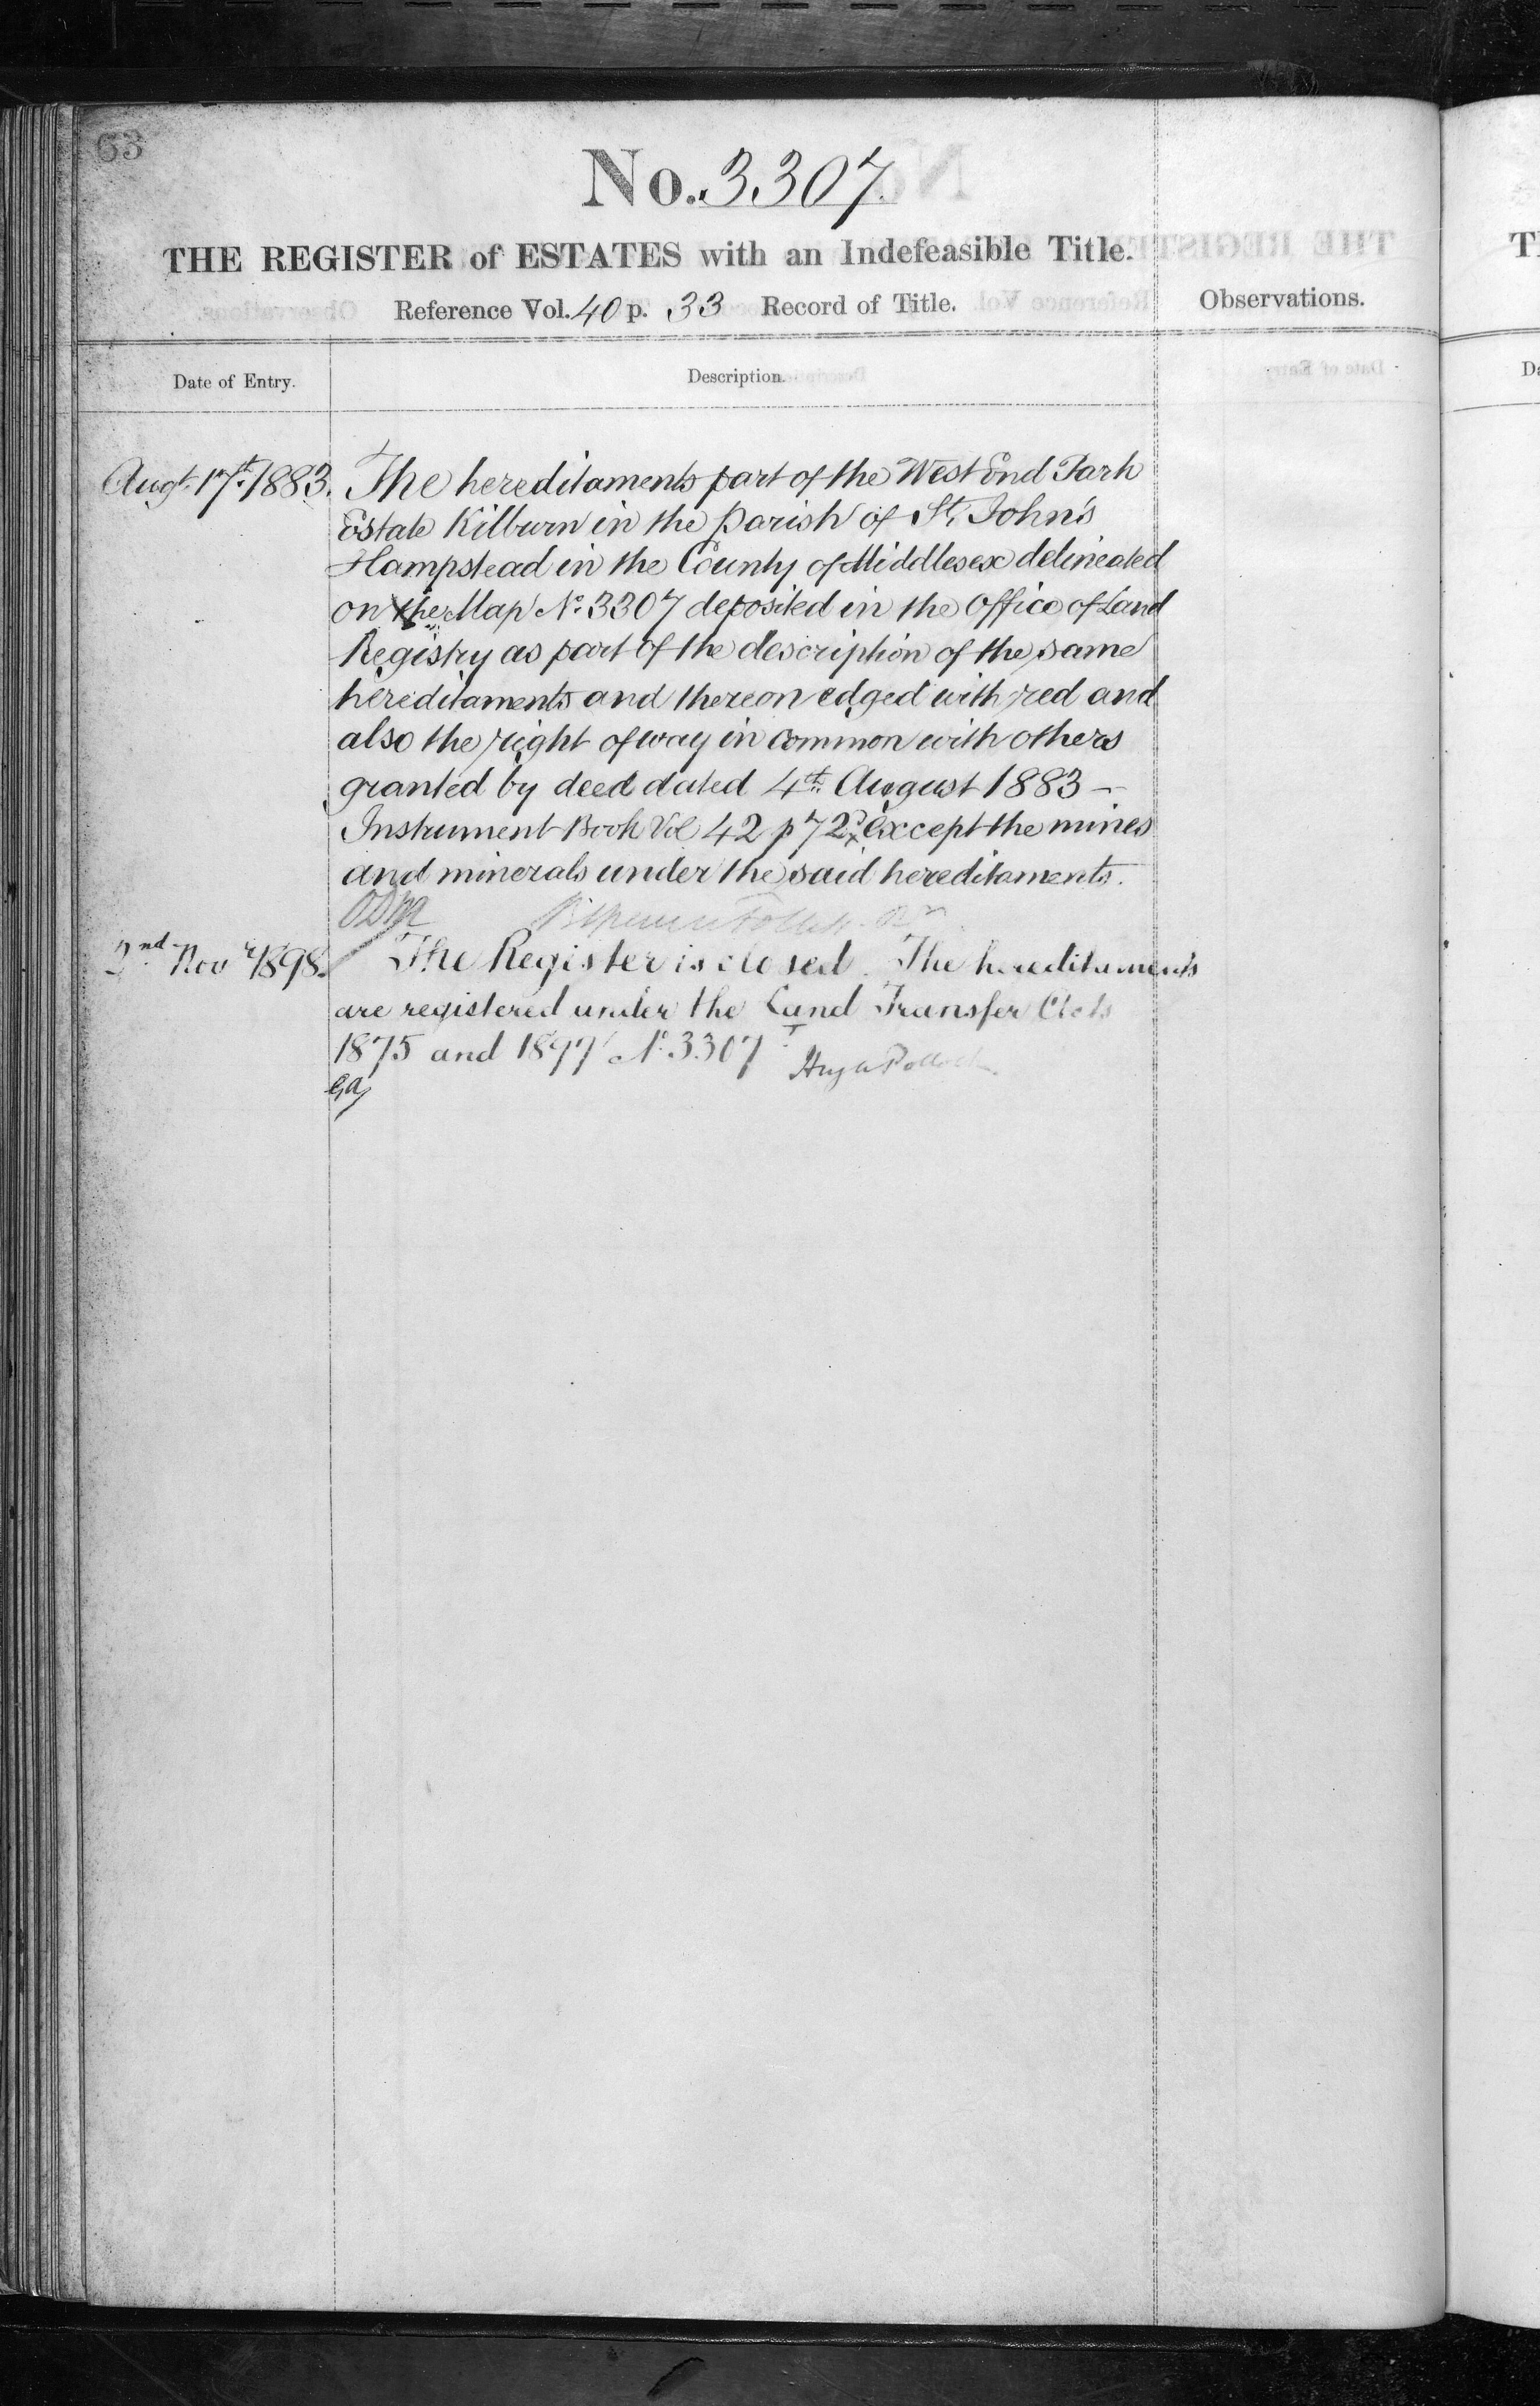 63
No. 3307.
THE REGISTER of ESTATES with an Indefeasible Title.
Reference Vol. 40 p. 33 Record of Title.
Observations.
Date of Entry.
Description.
Augt. 17th 1883. The hereditaments part of the West End Park
Estate Kilburn in the parish of St. John's
Hampstead in the County of Middlesex delineated
on the Map No. 3307 deposited in the Office of Land
Registry as part of the description of the same
hereditaments and thereon edged with red and
also the right of way in common with others
granted by deed dated 4th August 1883 —
Instrument Book Vol 42 p 72 except the mines
and minerals under the said hereditaments.
2nd Novr 1898. The Register is closed. The hereditaments
are registered under the Land Transfer Acts
1875 and 1897 No. 3307
Hugh Pollock